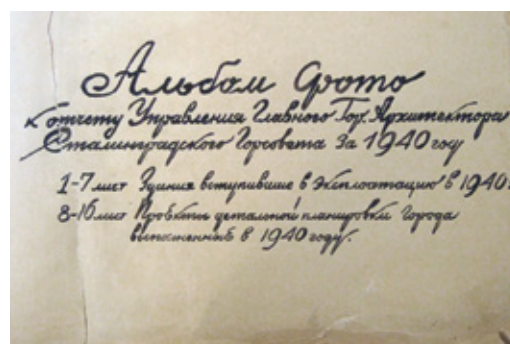 Альбом Фото
к отчету Управления Главного Гор. Архитектора
Сталинградского Горсовета за 1940 году
1-7 лист Здания вступившие в эксплоатацию в 1940.
8-16 лист Проекты детальной планировки города
выполненные в 1940 году.